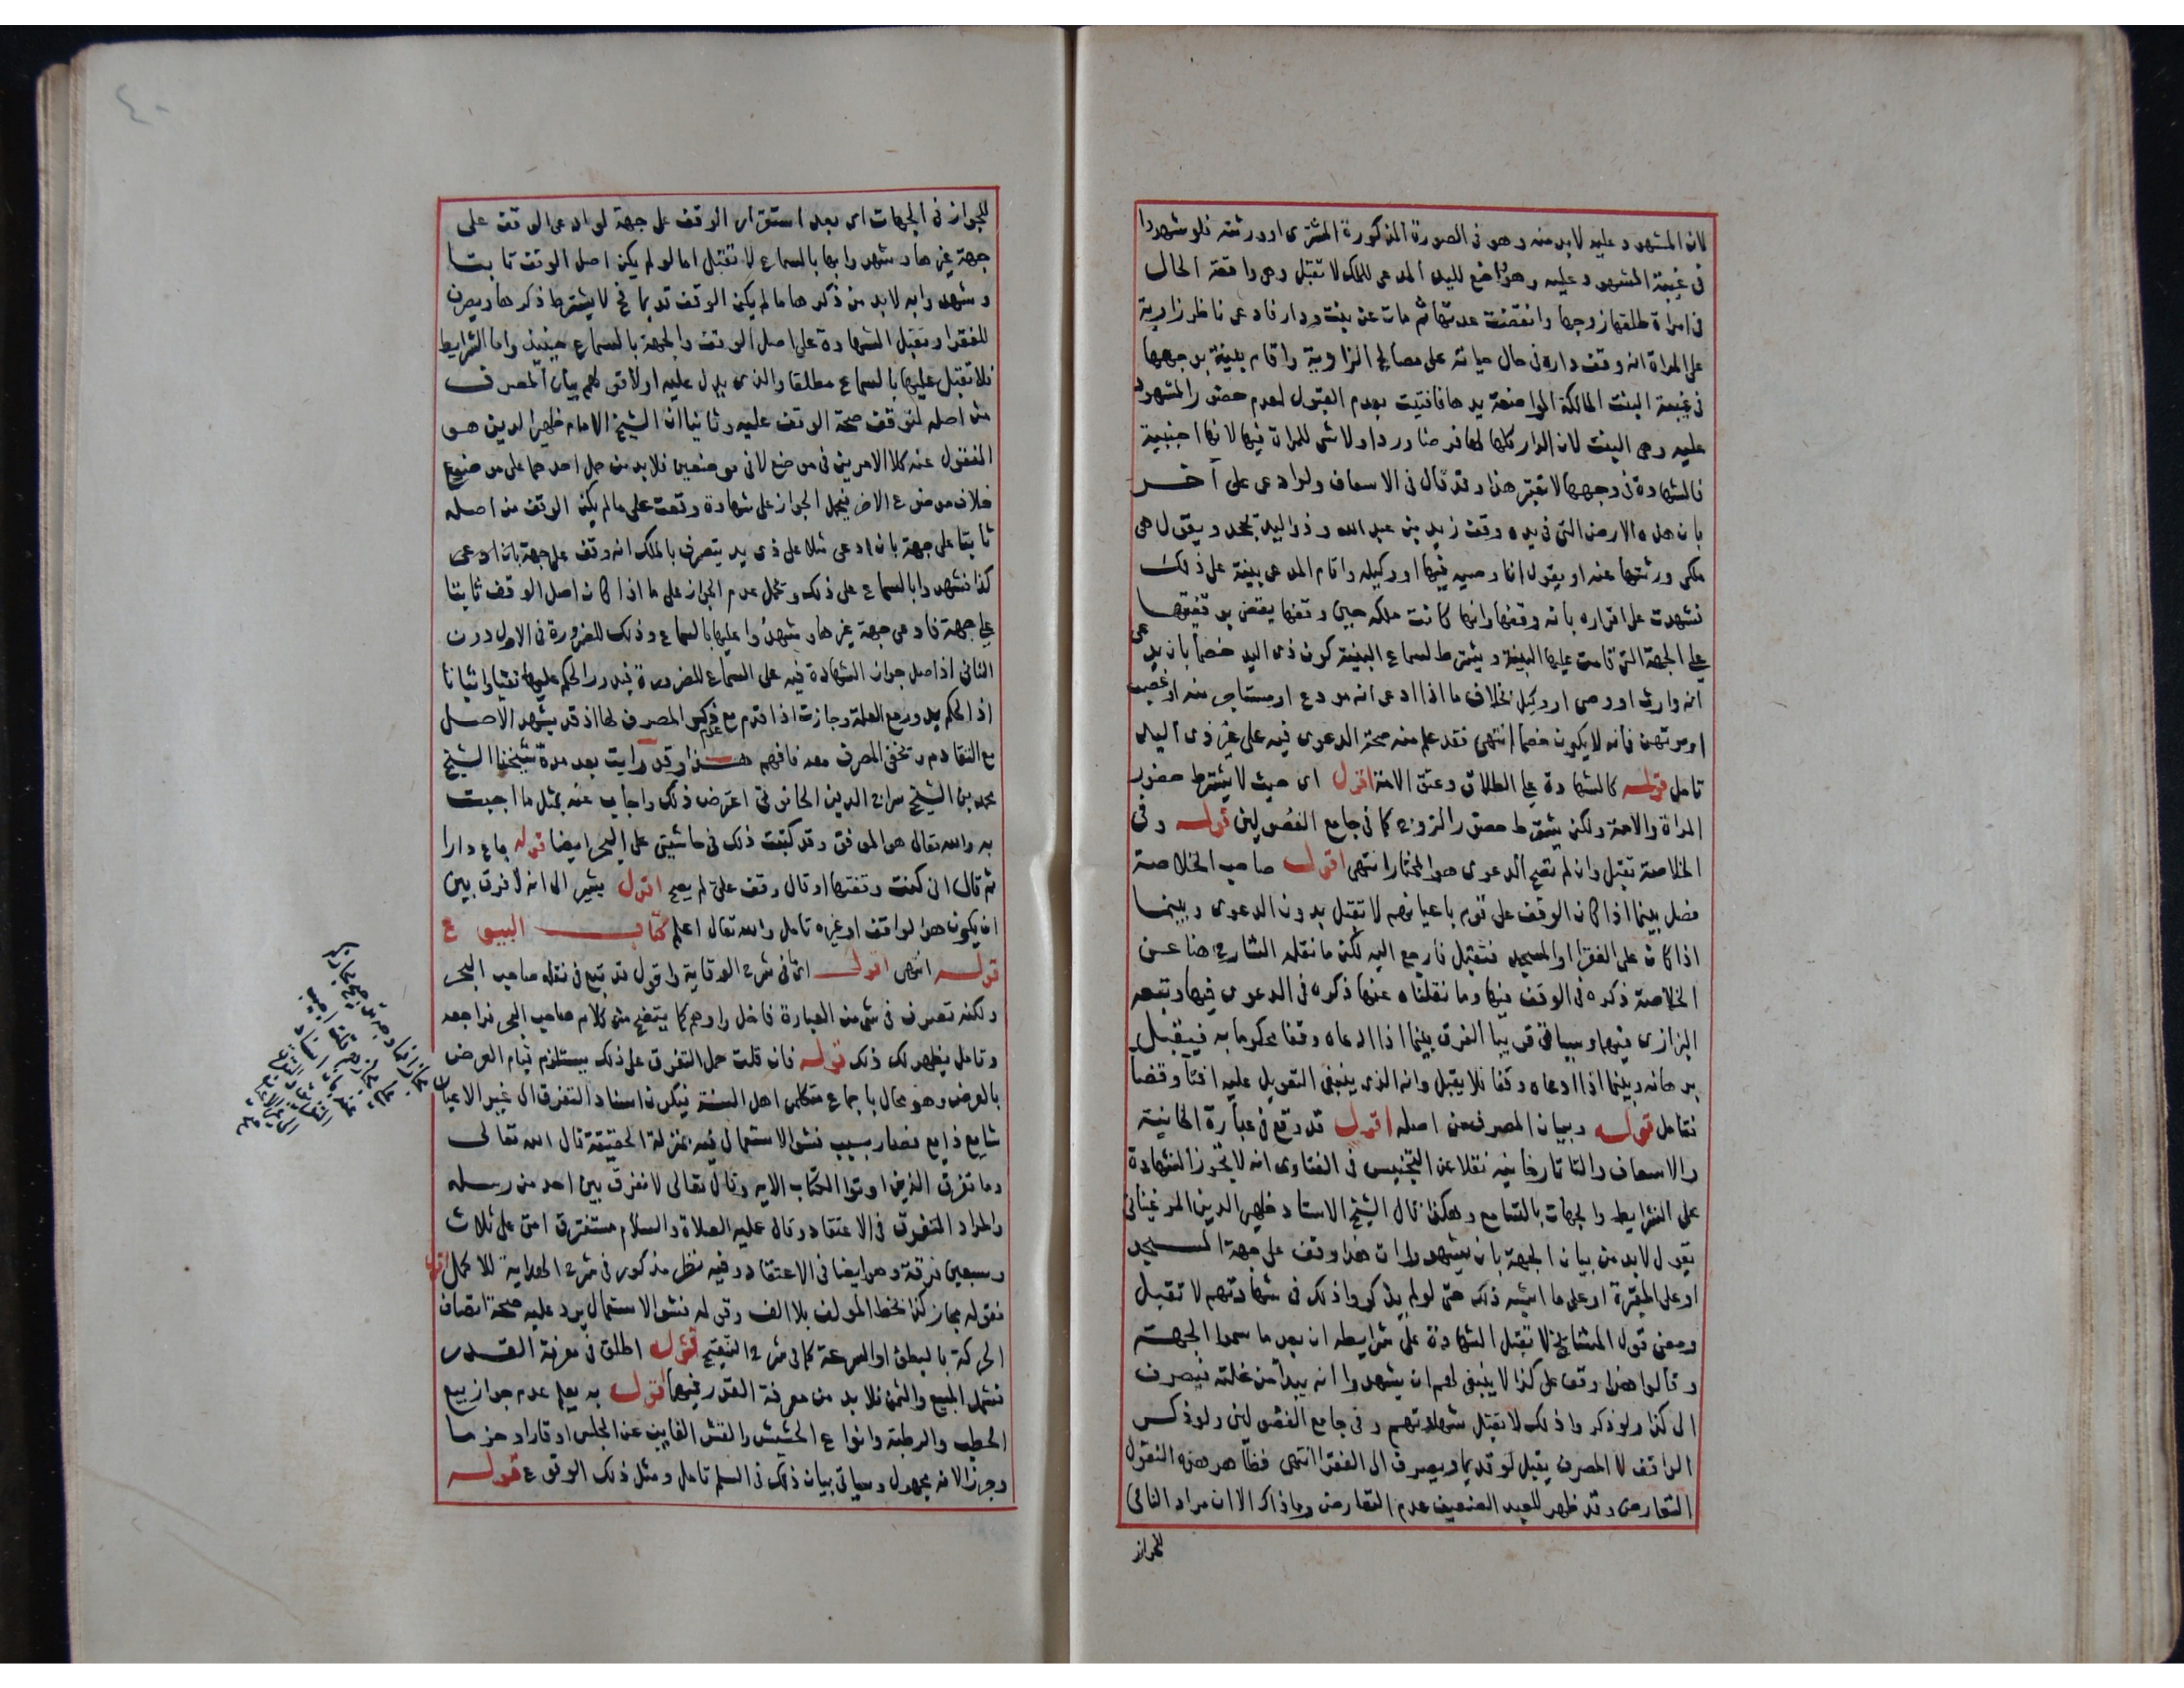 لان المشهود عليه لابد منه وهو فى الصورة المذكورة المشترى او ورثته فلو شهدوا
فى غيبة المشهود عليه وهو واضع لليد المدعى للملك لا تقبل وهى واقعة الحال
فى امراة طلقها زوجها وانقضت عدتها ثم مات عن بنت ودار فادعى ناظر زاوية
على المراة انه وقف داره فى حال حياته على مصالح الزاوية واقام بينة بوجهها
فى غيبة البنت المالكة الواضعة يدها فافتيت بعدم القبول لعدم حضور المشهود
عليه وهى البنت لان الدار كلها لها فرضا وردا ولا شى للمراة فيها لانها اجنبية
فالشهادة فى وجهها لا تعتبر هذا وقد قال فى الاسعاف ولو ادعى على آخر
بان هذه الارض التى فى يده وقف زيد بن عبد الله وذو اليد يجحد ويقول هى
ملكى ورثتها عنه او يقول انا وصيه فيها او وكيله واقام المدعى بينة على ذلك
فشهدت على اقراره بانه وقفها وانها كانت ملكه حين وقفها يقضى بوقفيتها
على الجهة التى قامت عليها البينة ويشترط لسماع البينة كون ذى اليد خصما بان يدعى
انه وارث او وصى او وكيل بخلاف ما اذا ادعى انه مودع او مستاجر منه او غصب
او مرتهن فانه لا يكون خصما انتهى فقد علم منه صحة الدعوى فيه على غير ذى اليد
تامل قوله كالشهادة على الطلاق وعتق الامة اقول اى حيث لا يشترط حضور
المراة والامة ولكن يشترط حضور الزوج كما فى جامع الفصولين قوله وفى
الخلاصة تقبل وان لم تصح الدعوى هو المختار انتهى اقول صاحب الخلاصة
فصل بينما اذا كان الوقف على قوم باعيانهم لا تقبل بدون الدعوى وبينما
اذا كان على الفقرا او المسجد فتقبل فارجع اليه لكن ما نقله الشارح هنا عن
الخلاصة ذكره فى الوقف منها وما نقلناه عنها ذكره فى الدعوى فيها وتبعه
البزازى فيهما وسياتى قريبا الفرق بينما اذا ادعاه وقفا محكوما به فيقبل
برهانه وبينما اذا ادعاه وقفا فلا يقبل وانه الذى ينبغى التعويل عليه افتا وقضا
فتامل قوله وبيان المصرف من اصله اقول قد وقع فى عبارة الخانية
والاسعاف والتاتارخانيه نقلا عن التجنيس فى الفتاوى انه لا تجوز الشهادة
على الشرايط والجهات بالتسامع وهكذا قال الشيخ الاستاد ظهير الدين المرغينانى
يقول لابد من بيان الجهة بان يشهدوا ان هذا وقف على جهة المسجد
او على المقبرة او على ما اشبه ذلك حتى لو لم يذكروا ذلك فى شهادتهم لا تقبل
ومعنى قول المشايخ لا تقبل الشهادة على شرايطه ان بعد ما سموا الجهة
وقالوا هذا وقف على كذا لا ينبغى لهم ان يشهدوا انه يبدأ من غلته فيصرف
الى كذا ولو ذكروا ذلك لا تقبل شهادتهم وفى جامع الفصولين ولو ذكر
الواقف لا المصرف يقبل لو قديما ويصرف الى الفقرا انتهى فظاهر هذه النقول
التعارض وقد ظهر للعبد الضعيف عدم التعارض وما ذاك الا ان مراد النافى
للجواز
للجواز فى الجهات اى بعد استقرار الوقف على جهة لو ادعى الوقف على
جهة غيرها وشهدوا بها بالسماع لا تقبل اما لو لم يكن اصل الوقف ثابتا
وشهدوا به لابد من ذكرها ما لم يكن الوقف قديما فح لا يشترط ذكرها ويصرف
للفقرا وتقبل الشهادة على اصل الوقف والجهة بالسماع حينئذ واما الشرايط
فلا تقبل عليها بالسماع مطلقا والذى يدل عليه اولا قولهم بيان المصرف
من اصله لتوقف صحة الوقف عليه وثانيا ان الشيخ الامام ظهير الدين هو
المنقول عنه كلا الامرين فى موضع لا فى موضعين فلابد من حمل احدهما على موضوع
خلاف موضوع الاخر فيحمل الجواز على شهادة وقعت على ما لم يكن الوقف من اصله
ثابتا على جهة بان ادعى مثلا على ذى يد يتصرف بالملك انه وقف على جهة بان ادعى
كذا فشهدوا بالسماع على ذلك وتحمل عدم الجواز على ما اذا كان اصل الوقف ثابتا
على جهة فادعى جهة غيرها وشهدوا عليها بالسماع وذلك للضرورة فى الاول دون
الثانى اذ اصل جواز الشهادة فيه على السماع للضرورة فيدور الحكم عليها نفيا واثباتا
اذ الحكم يدور مع العلة وجازت اذا قدم مع عدم ذكر المصرف لها اذ قد يشهد الاصل
مع التقادم وتخفى المصرف معه فافهم هذا وقد رايت بعد مدة شيخنا الشيخ
محمد بن الشيخ سراج الدين الحانوتى اعترض ذلك واجاب عنه بمثل ما اجبت
به والله تعالى هو الموفق وقد كتبت ذلك فى حاشيتى على البحر ايضا قوله باع دارا
ثم قال انى كنت وقفتها او قال وقف على لم يصح اقول يشير الى انه لا فرق بين
ان يكون هو الواقف او غيره تامل والله تعالى اعلم كتاب البيوع
قوله انتهى اقول اى فى شرح الوقاية واقول قد تبع فى نقله صاحب البحر
ولكنه تصرف فى شى من العبارة فاخل واوهم كما يتضح من كلام صاحب البحر فراجعه
وتامل يظهر لك ذلك قوله فان قلت حمل التفرق على ذلك يستلزم قيام العرض
بالعرض وهو محال باجماع متكلمى اهل السنة فيكون اسناد التفرق الى غير الاعيان
شايع ذايع فصار بسبب فشو الاستعمال فيه بمنزلة الحقيقة قال الله تعالى
وما تفرق الذين اوتوا الكتاب الايه وقال تعالى لا نفرق بين احد من رسله
والمراد التفرق فى الاعتقاد وقال عليه الصلاة والسلام ستفترق امتى على ثلاث
وسبعين فرقة وهو ايضا فى الاعتقاد وفيه نظر مذكور فى شرح الهداية للاكمل اقول
فقوله مجاز كذا بخط المولف بلا الف وقوله فشو الاستعمال يرد عليه صحة اتصاف
الحركة بالبطئ او السرعة كما فى شرح التنقيح قوله اطلق فى معرفة القدر
فشمل المبيع والثمن فلا بد من معرفة القدر فيهما اقول به يعلم عدم جواز بيع
الحطب والرطبة وانواع الحشيش والقش الغايب عن المجلس اوقارا وحزما
وجرزا لانه مجهول وسياتى بيان ذلك فى السلم تامل ومثل ذلك الوقوع قوله